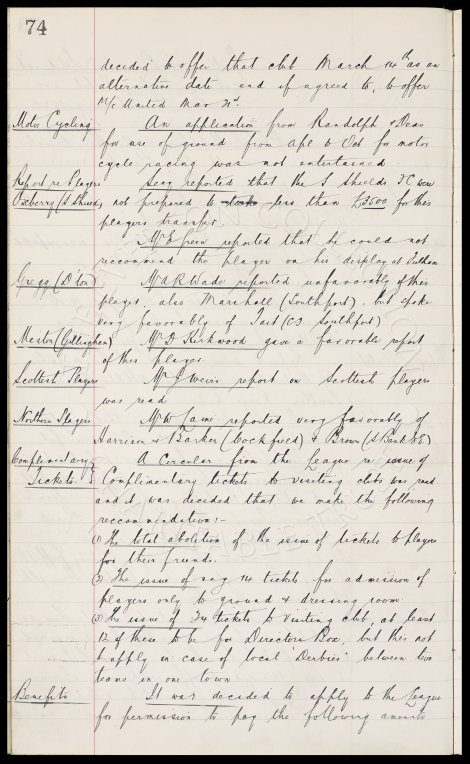 74
decided to offer that club March 14th as an
alternative date and if agreed to, to offer
M/c United Mar 21st.
Motor Cycling An application from Randolph & Deas
for use of ground from Apl to Oct for motor
cycle racing was not entertained.
Report re Players Secy reported that the S Shields FC were
Oxberry (S. Shields) not prepared to less than £3500 for this
players transfer.
Mr E Green reported that he could not
reccommend the player on his display at Fulham
Gregg (D'ton) Mr A R Wade reported unfavorably of this
player, also Marshall (Southport), but spoke
very favorably of Tait (C.F. Southport)
Meston (Gillingham) Mr D Kirkwood gave a favorable report
of this player.
Scottish Players Mr J Weirs report on Scottish players
was read
Northern Players Mr W Caine reported very favorably of
Harrison & Barker (Cockfield) & Brown (S Bank EE)
Complimentary A Circular from the League re issue of
Tickets. Complimentary tickets to visiting clubs was read
and it was decided that we make the following
reccomendation:-
(1) The total abolition of the issue of tickets to players
for their friends.
(2) The issue of say 14 tickets for admission of
players only to ground & dressing room
(3) The issue of 34 tickets to visiting club, at least
12 of these to be for Directors Box, but this not
to apply in case of local 'Derbies' between two
teams in one town
Benefits It was decided to apply to the League
for permission to pay the following amounts